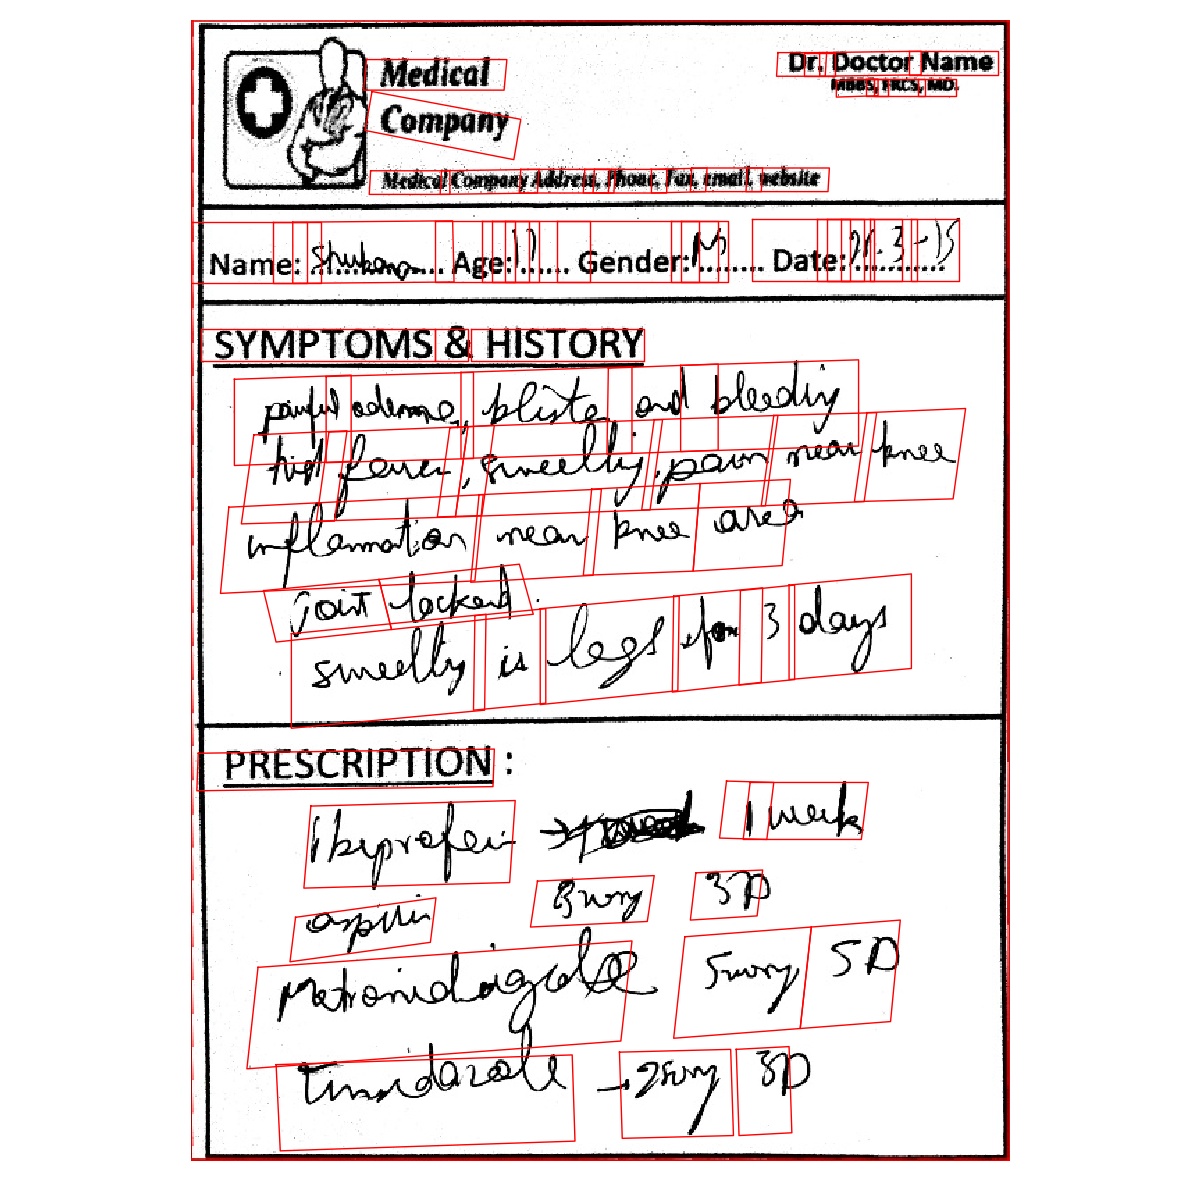 Medical
Company
Dr. Doctor Name
MBBS, FRCS, MD.
Medical Company Address, Phone, Fax, email, website
Name: Age: 17 Gender: M Date: 3-15
SYMPTOMS & HISTORY
painful odema, bliste and bleeding
high fever, smeelly, pain near knee
inflammation near knee area
joint locked.
smeelly is legs for 3 days
PRESCRIPTION :
ibyprofein → 1 week
aspirin 3D
Metronidazole 5D
Tinidazole → 3D